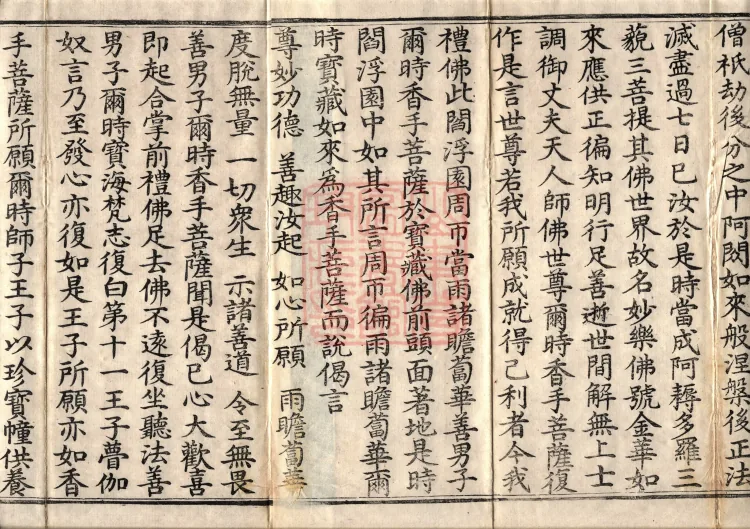 僧祇劫後分之中阿閦如來般涅槃後正法
滅盡過七日已汝於是時當成阿耨多羅三
藐三菩提其佛世界故名妙樂佛號金華如
來應供正徧知明行足善逝世間解無上士
調御丈夫天人師佛世尊爾時香手菩薩復
作是言世尊若我所願成就得己利者今我
禮佛此閻浮園周帀當雨諸瞻蔔華善男子
爾時香手菩薩於寶藏佛前頭面著地是時
閻浮園中如其所言周帀徧雨諸瞻蔔華爾
時寶藏如來爲香手菩薩而說偈言
尊妙功德 善趣汝起 如心所願 雨瞻蔔華
度脫無量 一切衆生 示諸善道 令至無畏
善男子爾時香手菩薩聞是偈已心大歡喜
即起合掌前禮佛足去佛不遠復坐聽法善
男子爾時寶海梵志復白第十一王子瞢伽
奴言乃至發心亦復如是王子所願亦如香
手菩薩所願爾時師子王子以珍寶幢供養